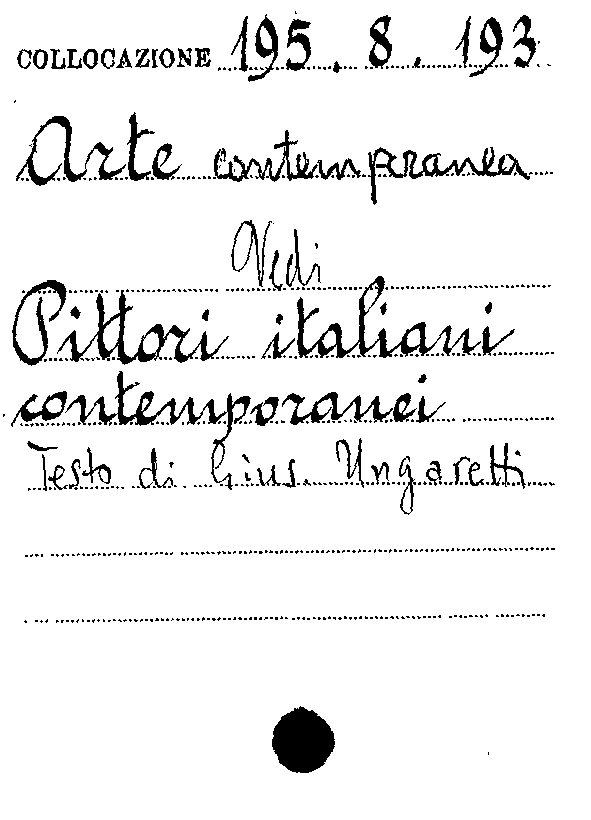 COLLOCAZIONE 195. 8. 193
Arte contemporanea
Vedi
Pittori italiani
contemporanei
Testo di Gius. Ungaretti